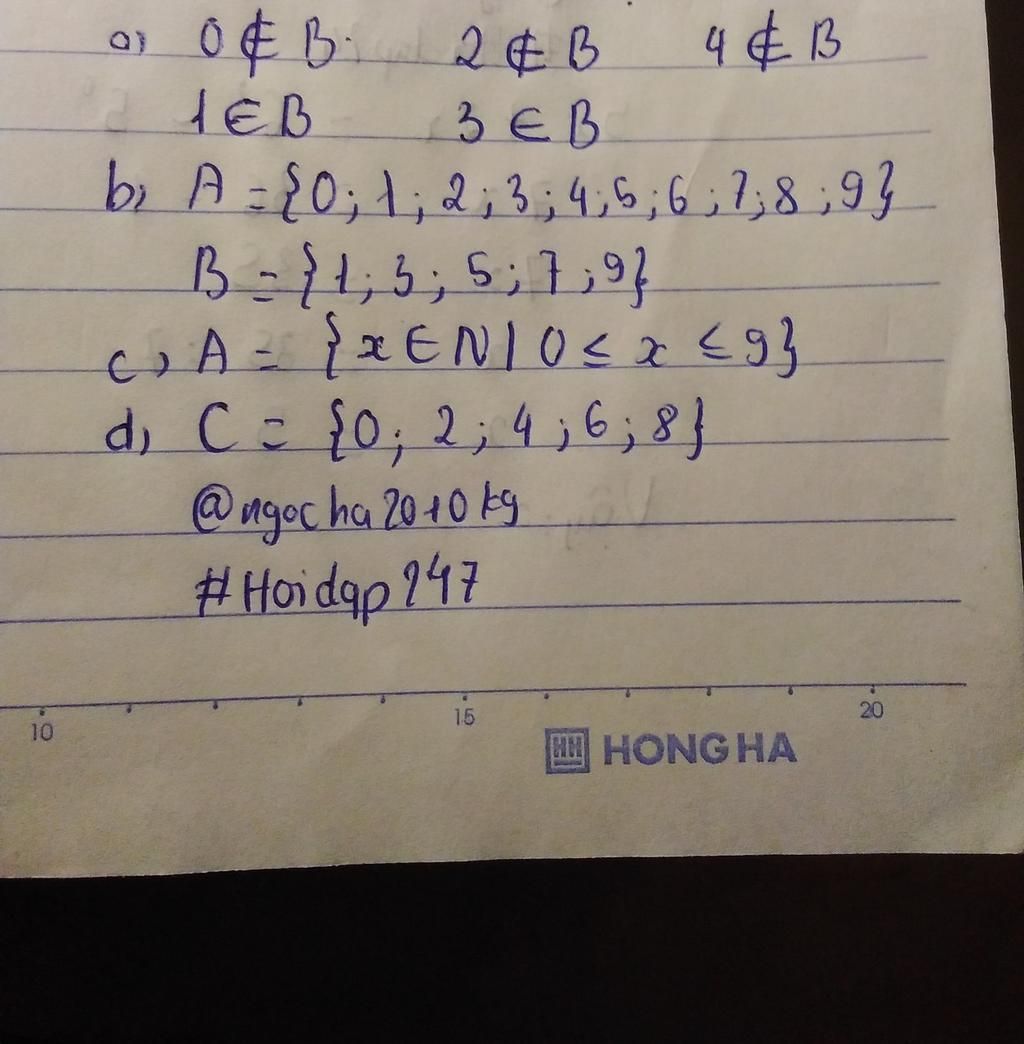 a) 0 ∉ B. 2 ∉ B 4 ∉ B
1 ∈ B 3 ∈ B
b) A = {0; 1; 2; 3; 4; 5; 6; 7; 8; 9}
B = {1; 3; 5; 7; 9}
c) A = {x ∈ N | 0 ≤ x ≤ 9}
d) C = {0; 2; 4; 6; 8}
@ngocha2010kg
#Hoidap247
10 15 20
HH HONG HA